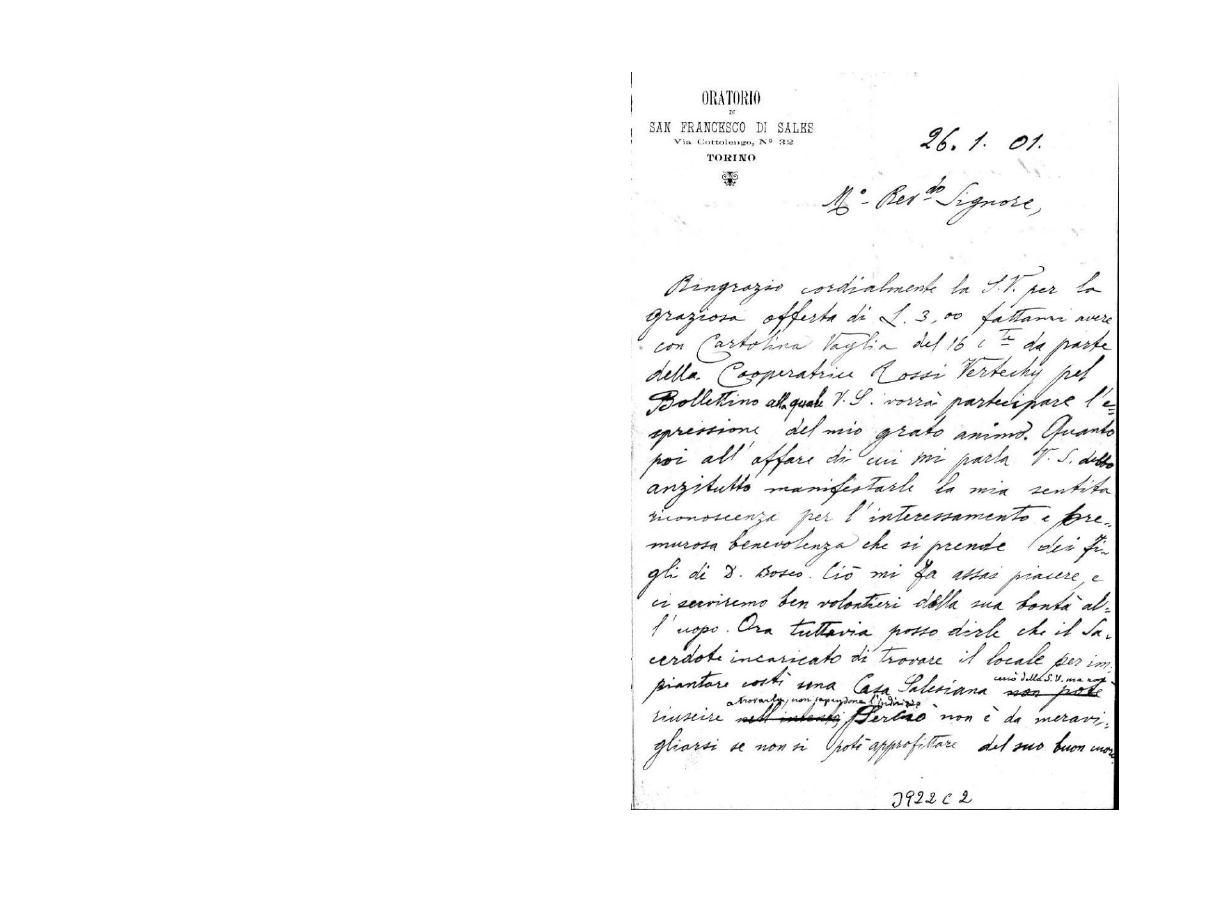 ORATORIO
DI
SAN FRANCESCO DI SALES
Via Cottolengo, Nº 32
TORINO
26. 1. 01.
M.º Rev.do Signore,
Ringrazio cordialmente la S.V. per la
graziosa offerta di L. 3,00 fattami avere
con Cartolina Vaglia del 16 c.te da parte
della Cooperatrice Rossi Vertechy pel
Bollettino alla quale V.S. vorrà partecipare l'e=
spressione del mio grato animo. Quanto
poi all'affare di cui mi parla V.S. debbo
anzitutto manifestarle la mia sentita
riconoscenza per l'interessamento e pre-
murosa benevolenza che si prende dei fi-
gli di D. Bosco. Ciò mi fa assai piacere, e
ci serviremo ben volontieri della sua bontà al=
l'uopo. Ora tuttavia posso dirle che il Sa-
cerdote incaricato di trovare il locale per im-
piantare costì una Casa Salesiana
cercò della S.V. ma non
non potè
riuscire
a trovarla, non sapendone l'indirizzo
Perciò non è da meravi-
gliarsi se non si potè approfittare del suo buon cuore.
J922 C 2